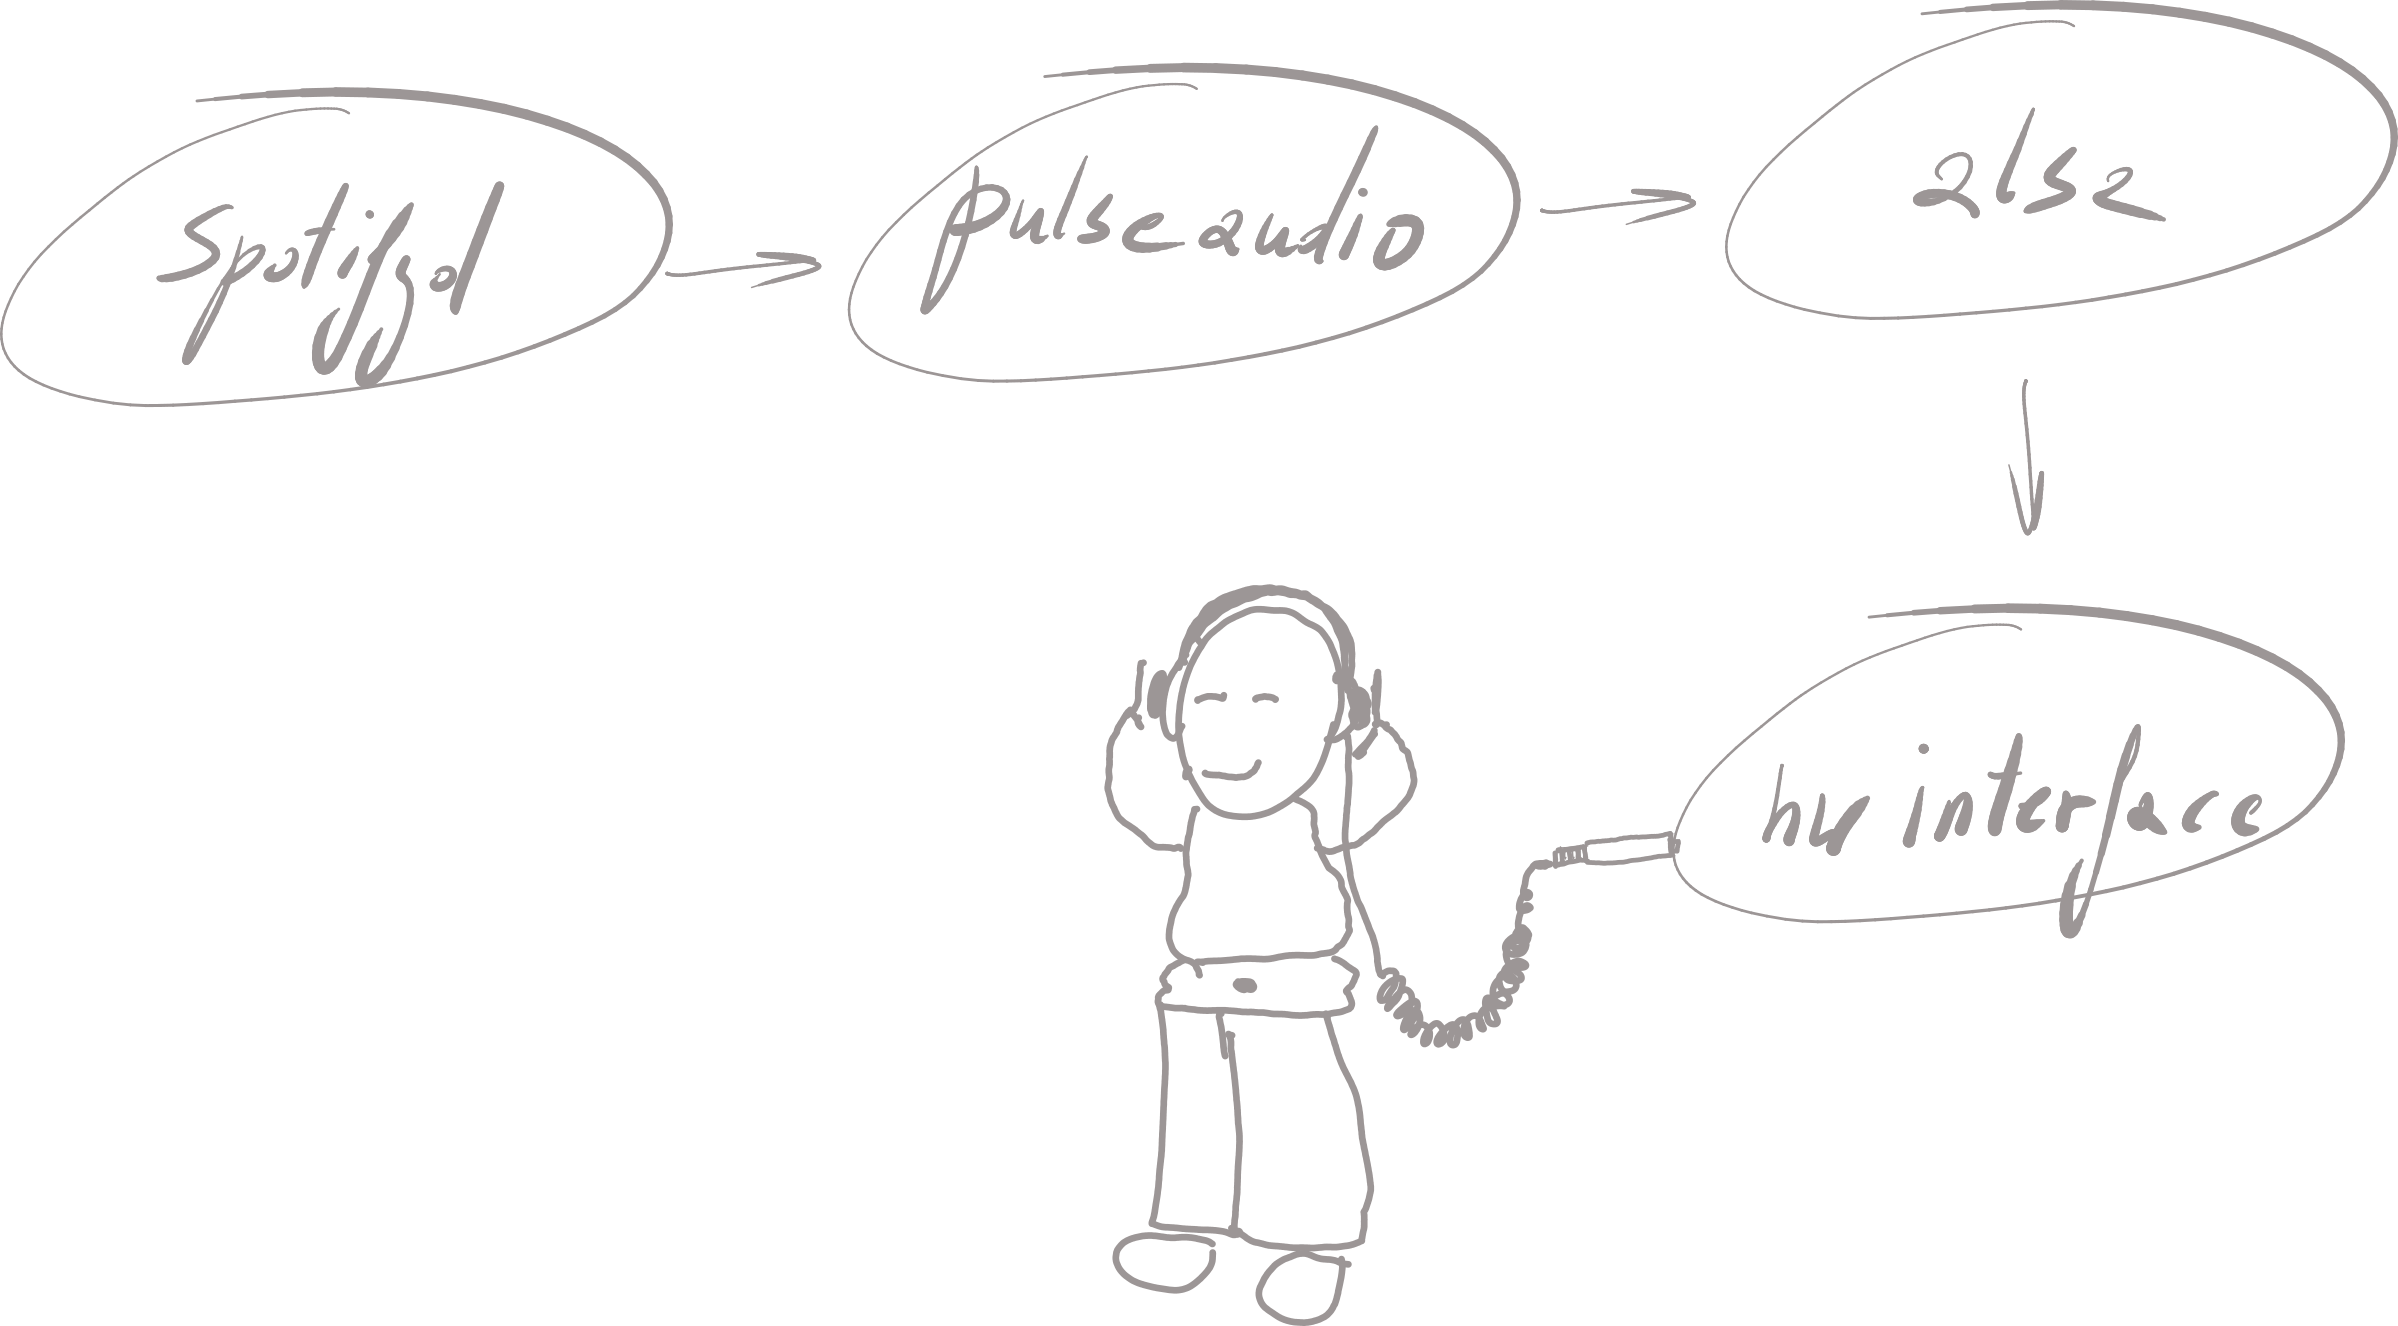 spotifyd
pulseaudio
alsa
hw interface